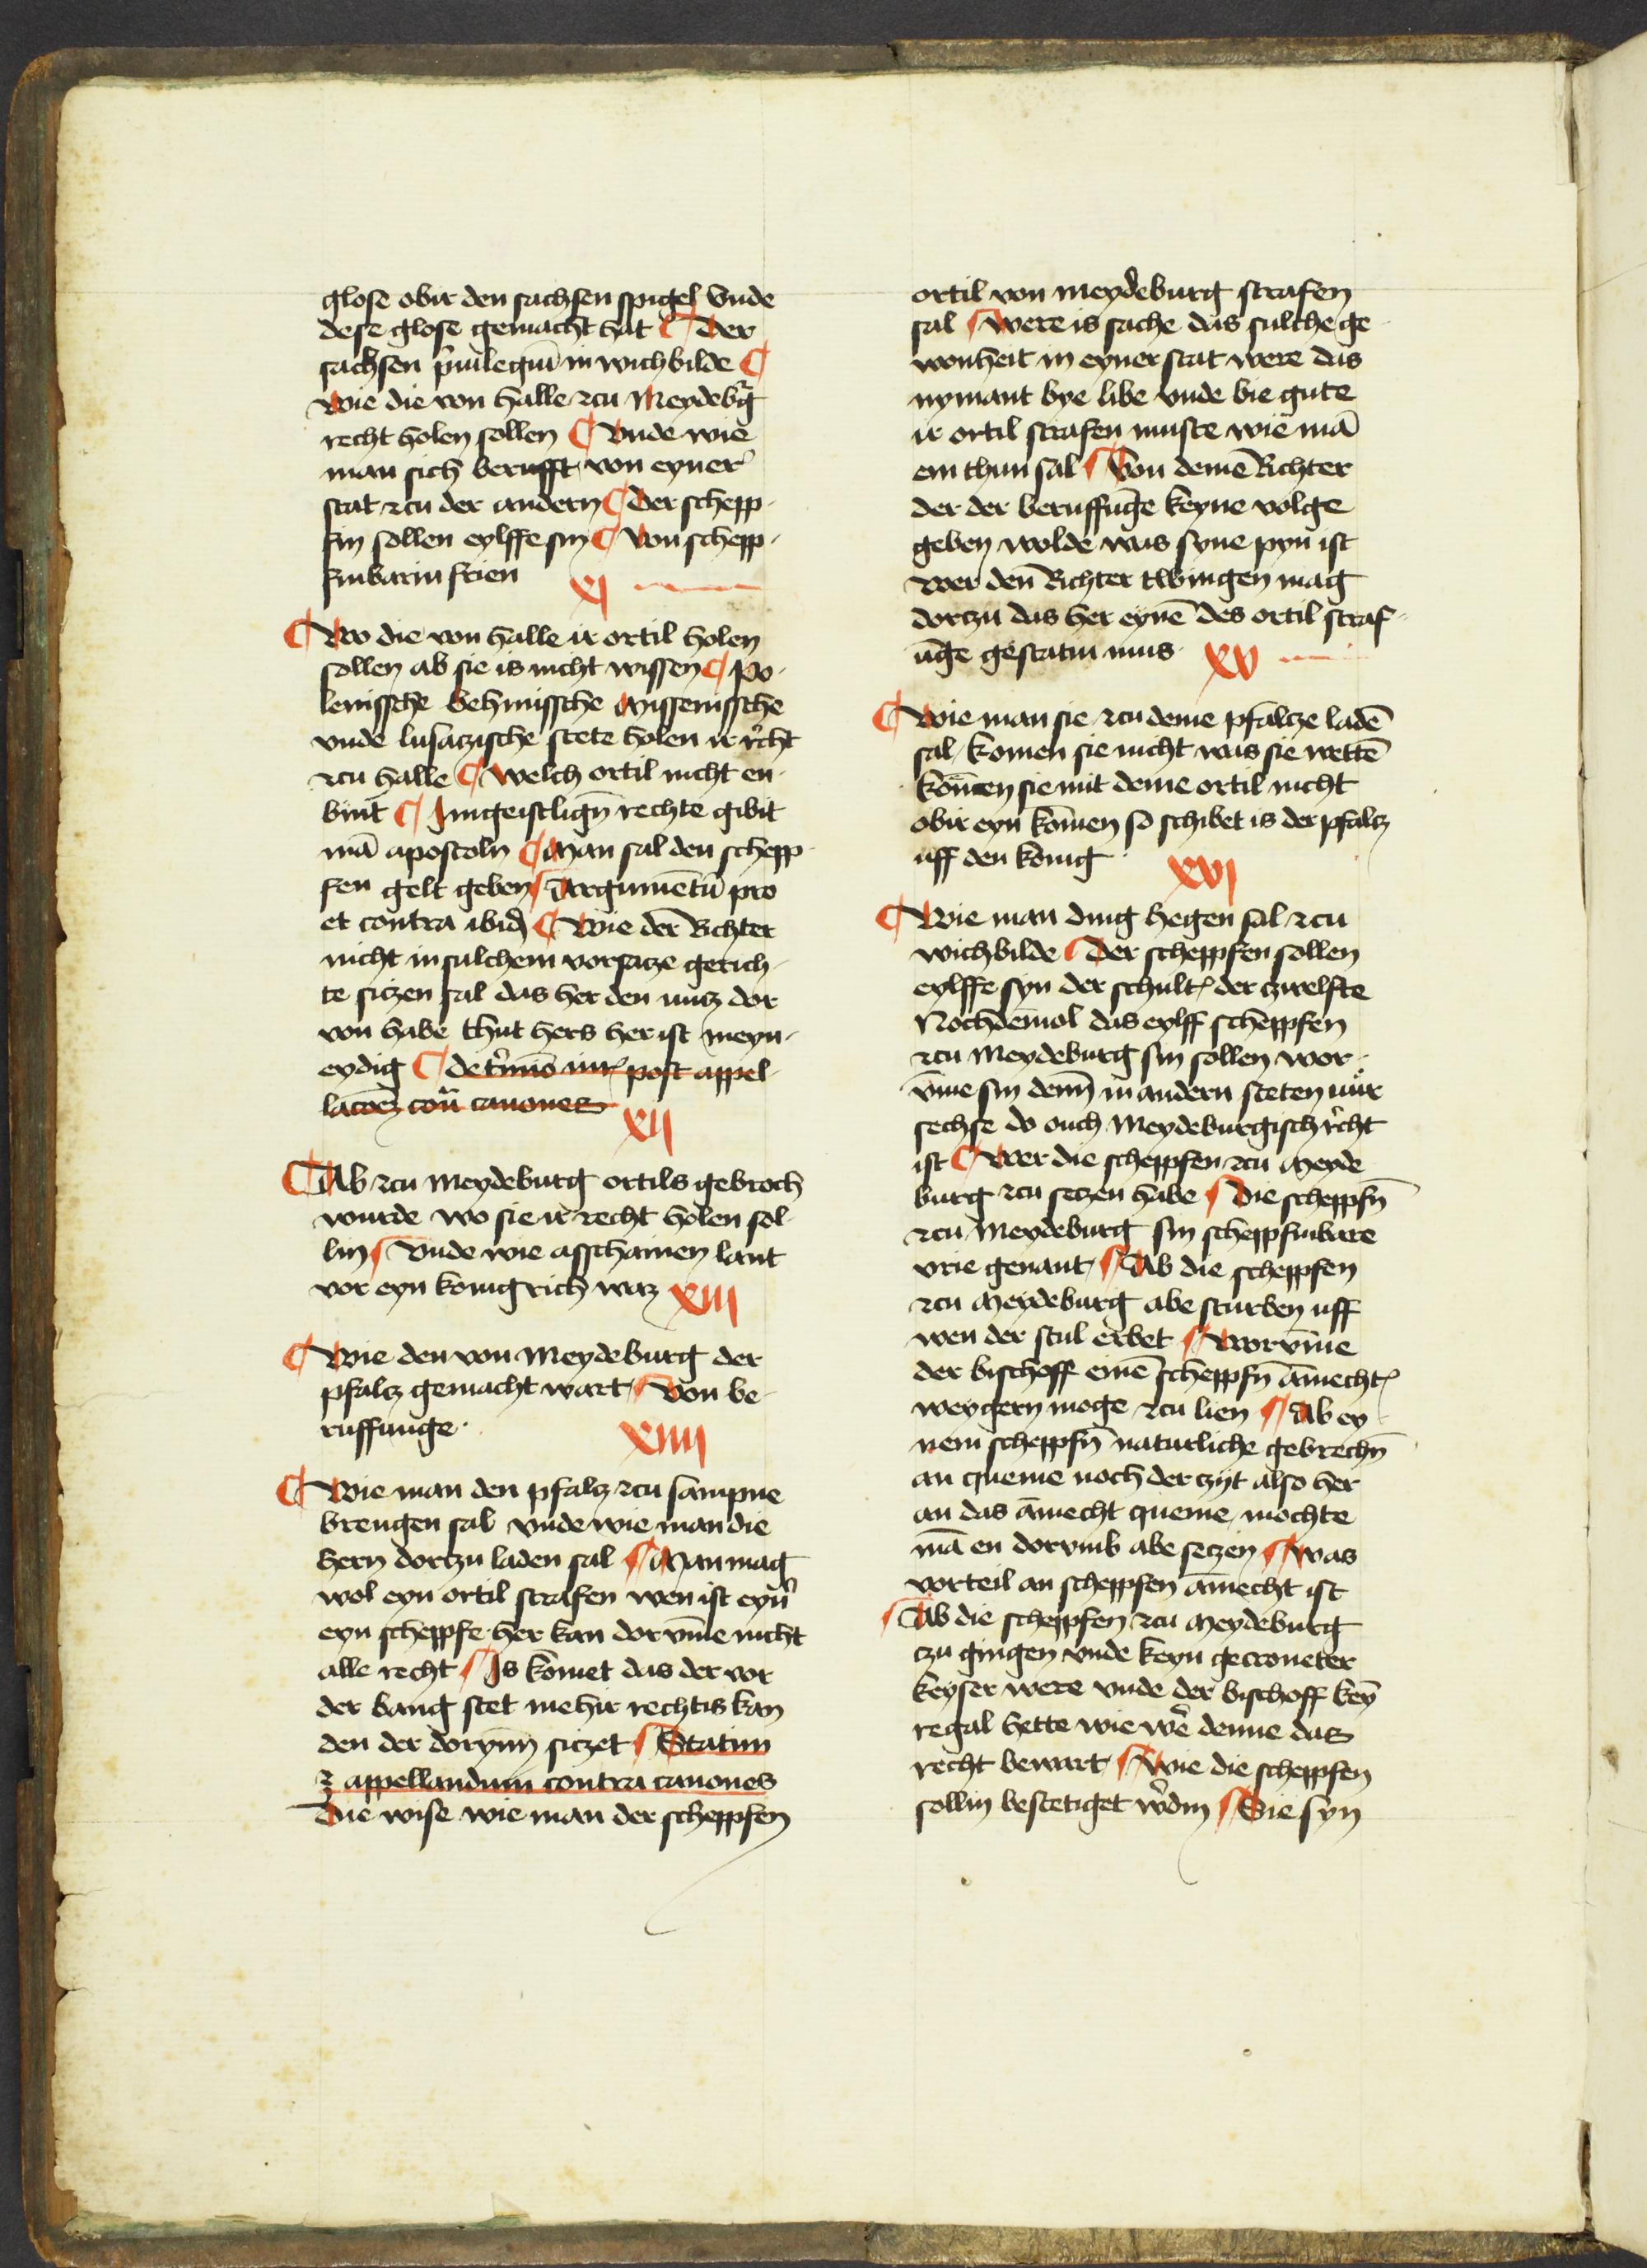 glose obir den sachsen spigel Vnde
dese glose gemacht hat ¶ Der
sachsen p̄uilegiū in wichbilde ¶
Wie die von halle zcu Meydeb̄g
recht holen sollen ¶ Vnde wie
man sich berufft von eyner
stat zcu der andern ¶ Der schepp-
fin sollen eylffe sin ¶ Von schepp-
finbarin frien
xj
¶ Wo die von halle ir ortil holen
sollen ab sie is nicht wissen ¶ Po-
lenissche behmissche Missenissche
vnde lusatzische stete holen ir r̉cht
zcu halle ¶ Welch ortil nicht en-
bint ¶ Im geistlign̄ rechte gibit
mā apostoln ¶ Man sal den schepp-
fen gelt geben ¶ Argumētū pro
et contra ibid ¶ Wie der Richter
nicht in sulchem vorsatze gerich-
te sitzen sal das her den nutz dor
von habe thut hers her ist meyn-
eydig ¶ post appel-
canones
xij
¶ Ab zcu Meydeburg ortils gebroch
wurde wo sie ir recht holen sol-
lin ¶ Vnde wie asschanien lant
vor eyn konigrich waz
xiij
¶ Wie den von Meydeburg der
pfaltz gemacht wart ¶ Von be-
ruffunge.
xiiij
¶ Wie man den pfaltz zcu sampne
brengen sal vnde wie man die
hern dortzu laden sal ¶ Man mag
wol eyn ortil strafen wen ist eyn̉
eyn scheppfe her kan dor vm̄e nicht
alle recht ¶ Is komet das der vor
der bang stet mehir rechtis kan
den der dorynn̄ sitzet ¶ Statim
ꝫ appellandum contra canones
Die wise wie man der scheppfen
ortil von meydeburg strafen
sal ¶ Were is sache das sulche ge-
wonheit in eyner stat were das
nymant bye libe vnde bie gute
ir ortil strafen muste wie mā
em thun sal ¶ Von demē Richter
der der beruffūge keyne volge
geben wolde was syne pyn ist
Wer den Richter twingen mag
dortzu das her eynē des ortil straf-
ūge gestatin mus.
xv
¶ Wie man sie zcu deme pfaltze ladē
sal komen sie nicht was sie wettē
kōmen sie mit deme ortil nicht
obir eyn kōmen so schibet is der pfaltz
uff den konig.
xvj
¶ Wie man ding hegen sal zcu
wichbilde ¶ Der scheppfen sollen
eylffe syn der schult̉ der zwelfte
Nochdēmol das eylff scheppfen
zcu Meydeburg sin sollen wor-
vm̄e sin denn̄ in andern steten nūr
sechse do ouch Meydeburgisch r̉cht
ist ¶ Wer die scheppfen zcu Meyde
burg zcu setzen habe ¶ Die scheppfn̄
zcu Meydeburg sin scheppfinbare
vrie genant ¶ Ab die scheppfen
zcu Meydeburg abe sturben uff
wen der stul erbet ¶ Worvm̄e
der bischoff einē scheppfn̄ am̄echt̉
weygern moge zcu lien ¶ Ab ey-
nem scheppfn̄ naturliche gebrechn̄
an queme noch der zyt also her
an das am̄echt queme mochte
mā en dorvmb abe setzen ¶ Was
vorteil an scheppfen am̄echt ist
¶ Ab die scheppfen zcu Meydeburg
tzu gingen vnde keyn gecroneter
keyser were vnde der bischoff keȳ
regal hette wie wē denne das
recht bewart ¶ Wie die scheppfen
sollin bestetiget w̉din ¶ Sie syn